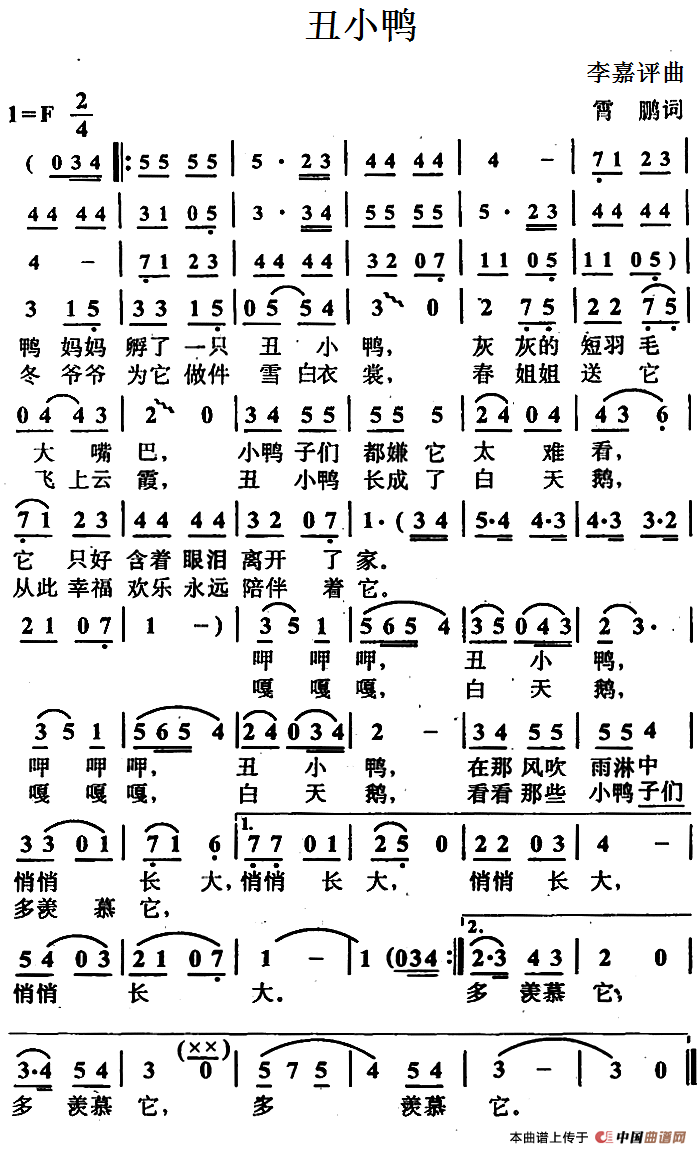 丑小鸭
李嘉评曲
1=F 2/4 霄 鹏词
( 034 ‖: 55 55 | 5 · 23 | 44 44 | 4 − | 71 23 |
44 44 | 31 05 | 3 · 34 | 55 55 | 5 · 23 | 44 44 |
4 − | 71 23 | 44 44 | 32 07 | 11 05 | 11 05 )
3 15 | 33 15 | 05 54 | 3 0 | 2 75 | 22 75 |
鸭 妈妈 孵了 一只 丑 小 鸭, 灰 灰的 短羽 毛
冬 爷爷 为它 做件 雪 白衣 裳, 春 姐姐 送 它
04 43 | 2 0 | 34 55 | 55 5 | 24 04 | 43 6 |
大 嘴 巴, 小鸭 子们 都嫌 它 太 难 看,
飞 上云 霞, 丑 小鸭 长成 了 白 天 鹅,
71 23 | 44 44 | 32 07 | 1 · ( 34 | 5·4 4·3 | 4·3 3·2 |
它 只好 含着 眼泪 离开 了 家.
从此 幸福 欢乐 永远 陪伴 着 它.
21 07 | 1 − ) | 35 1 | 565 4 | 35 043 | 2 3· |
呷 呷 呷, 丑 小 鸭,
嘎 嘎 嘎, 白 天 鹅,
35 1 | 565 4 | 24 034 | 2 − | 34 55 | 55 4 |
呷 呷 呷, 丑 小 鸭, 在那 风吹 雨淋 中
嘎 嘎 嘎, 白 天 鹅, 看看 那些 小鸭 子们
1.
33 01 | 71 6 | 77 01 | 25 0 | 22 03 | 4 − |
悄悄 长 大, 悄悄 长 大, 悄悄 长 大,
多羡 慕 它,
2.
54 03 | 21 07 | 1 − | 1 (034 :‖ 2·3 43 | 2 0 |
悄悄 长 大. 多 羡慕 它,
(××)
3·4 54 | 3 0 | 5 7 5 | 4 54 | 3 − | 3 0 ‖
多 羡慕 它, 多 羡慕 它.
本曲谱上传于 中国曲谱网